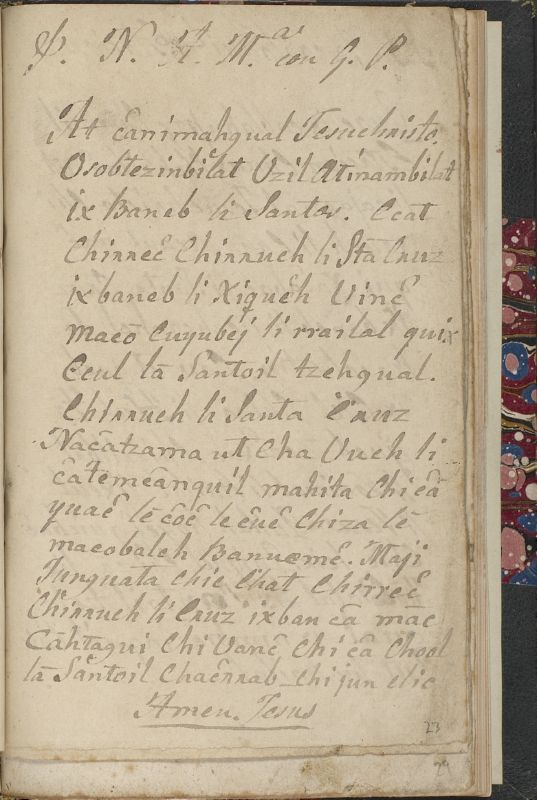 P. N. A. M.as con G. P.
At cânimahqual Jesuchristo.
Osobtezinbilat Uzil Atinambilat
ix Baneb li Santos. Ccat
Chirreê Chirruch li Sta Cruz
ixbaneb li Xiqueh Vinê
macô Cuyubej li rrailal quix
Ccul lâ Santoil tzehqual.
Chirruch li Santa Cruz
Nacâtzama ut Cha Vuch li
câtemeânquil mahita Chi câ
yuaê lê côê le êuê Chiza lê
macobaleh Banuemê. Maji
Junquata chic Chat Chirreê
Chirruch li Cruz ixban câ mâc
Câhtaqui Chi Vanê Chi câ Chool
lâ Santoil Chaêrrab Chi jun elic
Amen. Jesus
23
24